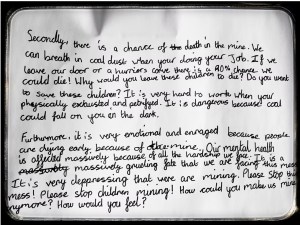 Secondly, there is a chance of the death in the mine. We
can breath in coal dust when your doing your job. If we
leave our door or a hurriors come there is a 90% chance we
could die! Why would you leave these children to die? Do you want
to save these children? It is very hard to work when your
physically exhusted and petrified. It is dangerous because coal
could fall on you in the dark.
Furthermore, it is very emotional and enraged because people
are dying early because of the mine. Our mental health
is affected massively because of all the hardship we face. It is a
massively massively grueling fate that we are facing this mess
It is very deppressing that were are mining. Please stop this
mess! Please stop children mining! How could you make us mine
anymore? How would you feel?